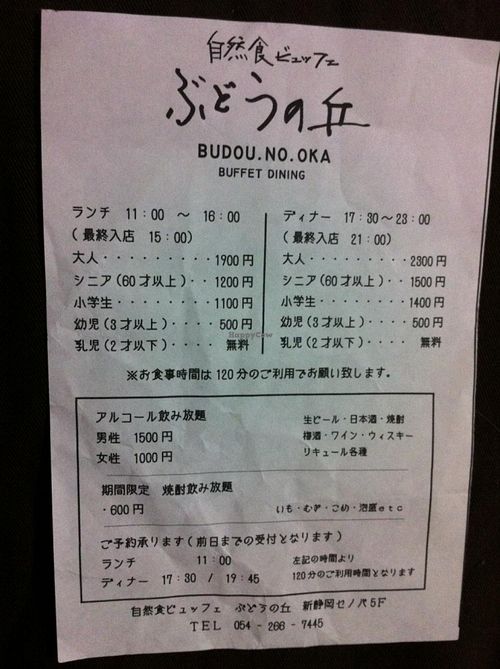 自然食ビュッフェ
ぶどうの丘
BUDOU.NO.OKA
BUFFET DINING
ランチ 11:00 ～ 16:00
(最終入店 15:00)
大人・・・・・・・・・1900円
シニア(60才以上)・・1200円
小学生・・・・・・・・1100円
幼児(3才以上)・・・・500円
乳児(2才以下)・・・・無料
ディナー 17:30～23:00
(最終入店 21:00)
大人・・・・・・・・・2300円
シニア(60才以上)・・1500円
小学生・・・・・・・・1400円
幼児(3才以上)・・・・500円
乳児(2才以下)・・・・無料
HappyCow
※お食事時間は120分のご利用でお願い致します。
アルコール飲み放題
男性 1500円
女性 1000円
生ビール・日本酒・焼酎
梅酒・ワイン・ウィスキー
リキュール各種
期間限定 焼酎飲み放題
・600円
いも・むぎ・こめ・泡盛etc
ご予約承ります(前日までの受付となります)
ランチ 11:00
ディナー 17:30 / 19:45
左記の時間より
120分のご利用時間となります
自然食ビュッフェ ぶどうの丘 新静岡セノバ5F
TEL 054-266-7445